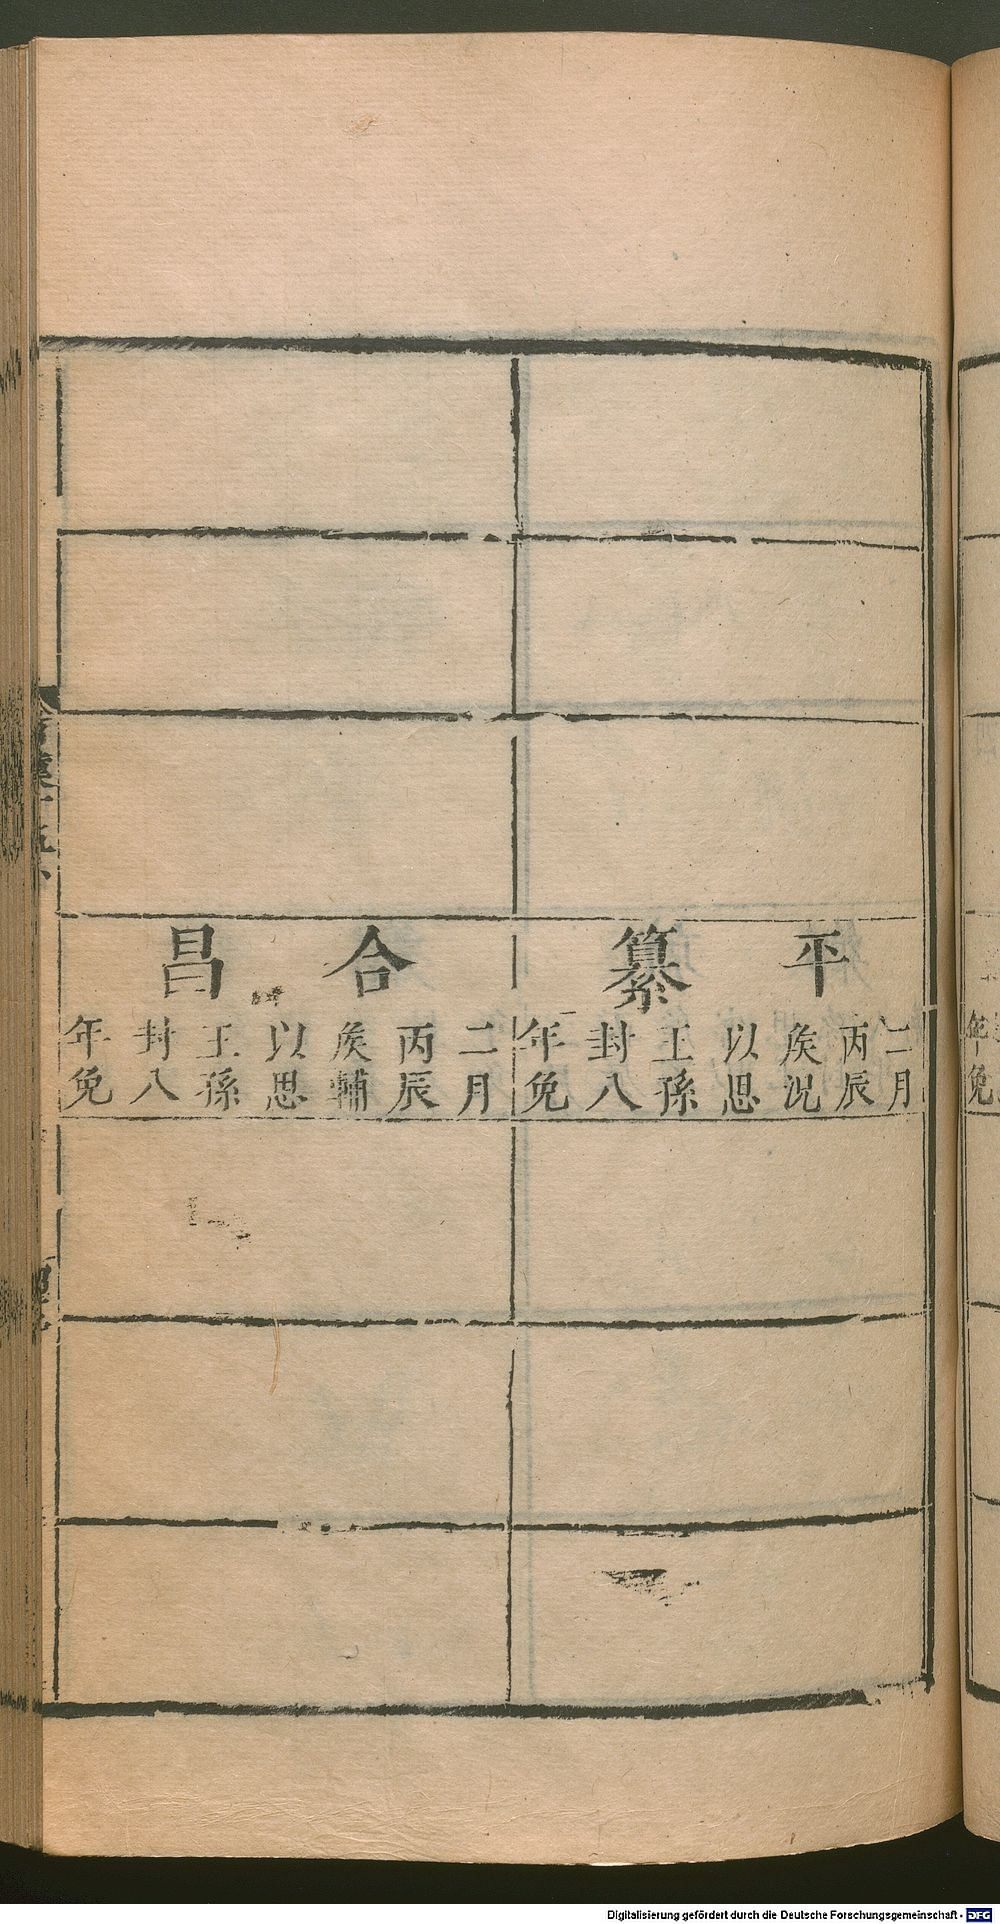 平纂
二月
丙辰
矦況
以思
王孫
封八
年免
合昌
二月
丙辰
矦輔
以思
王孫
封八
年免
年免
Digitalisierung gefördert durch die Deutsche Forschungsgemeinschaft - DFG